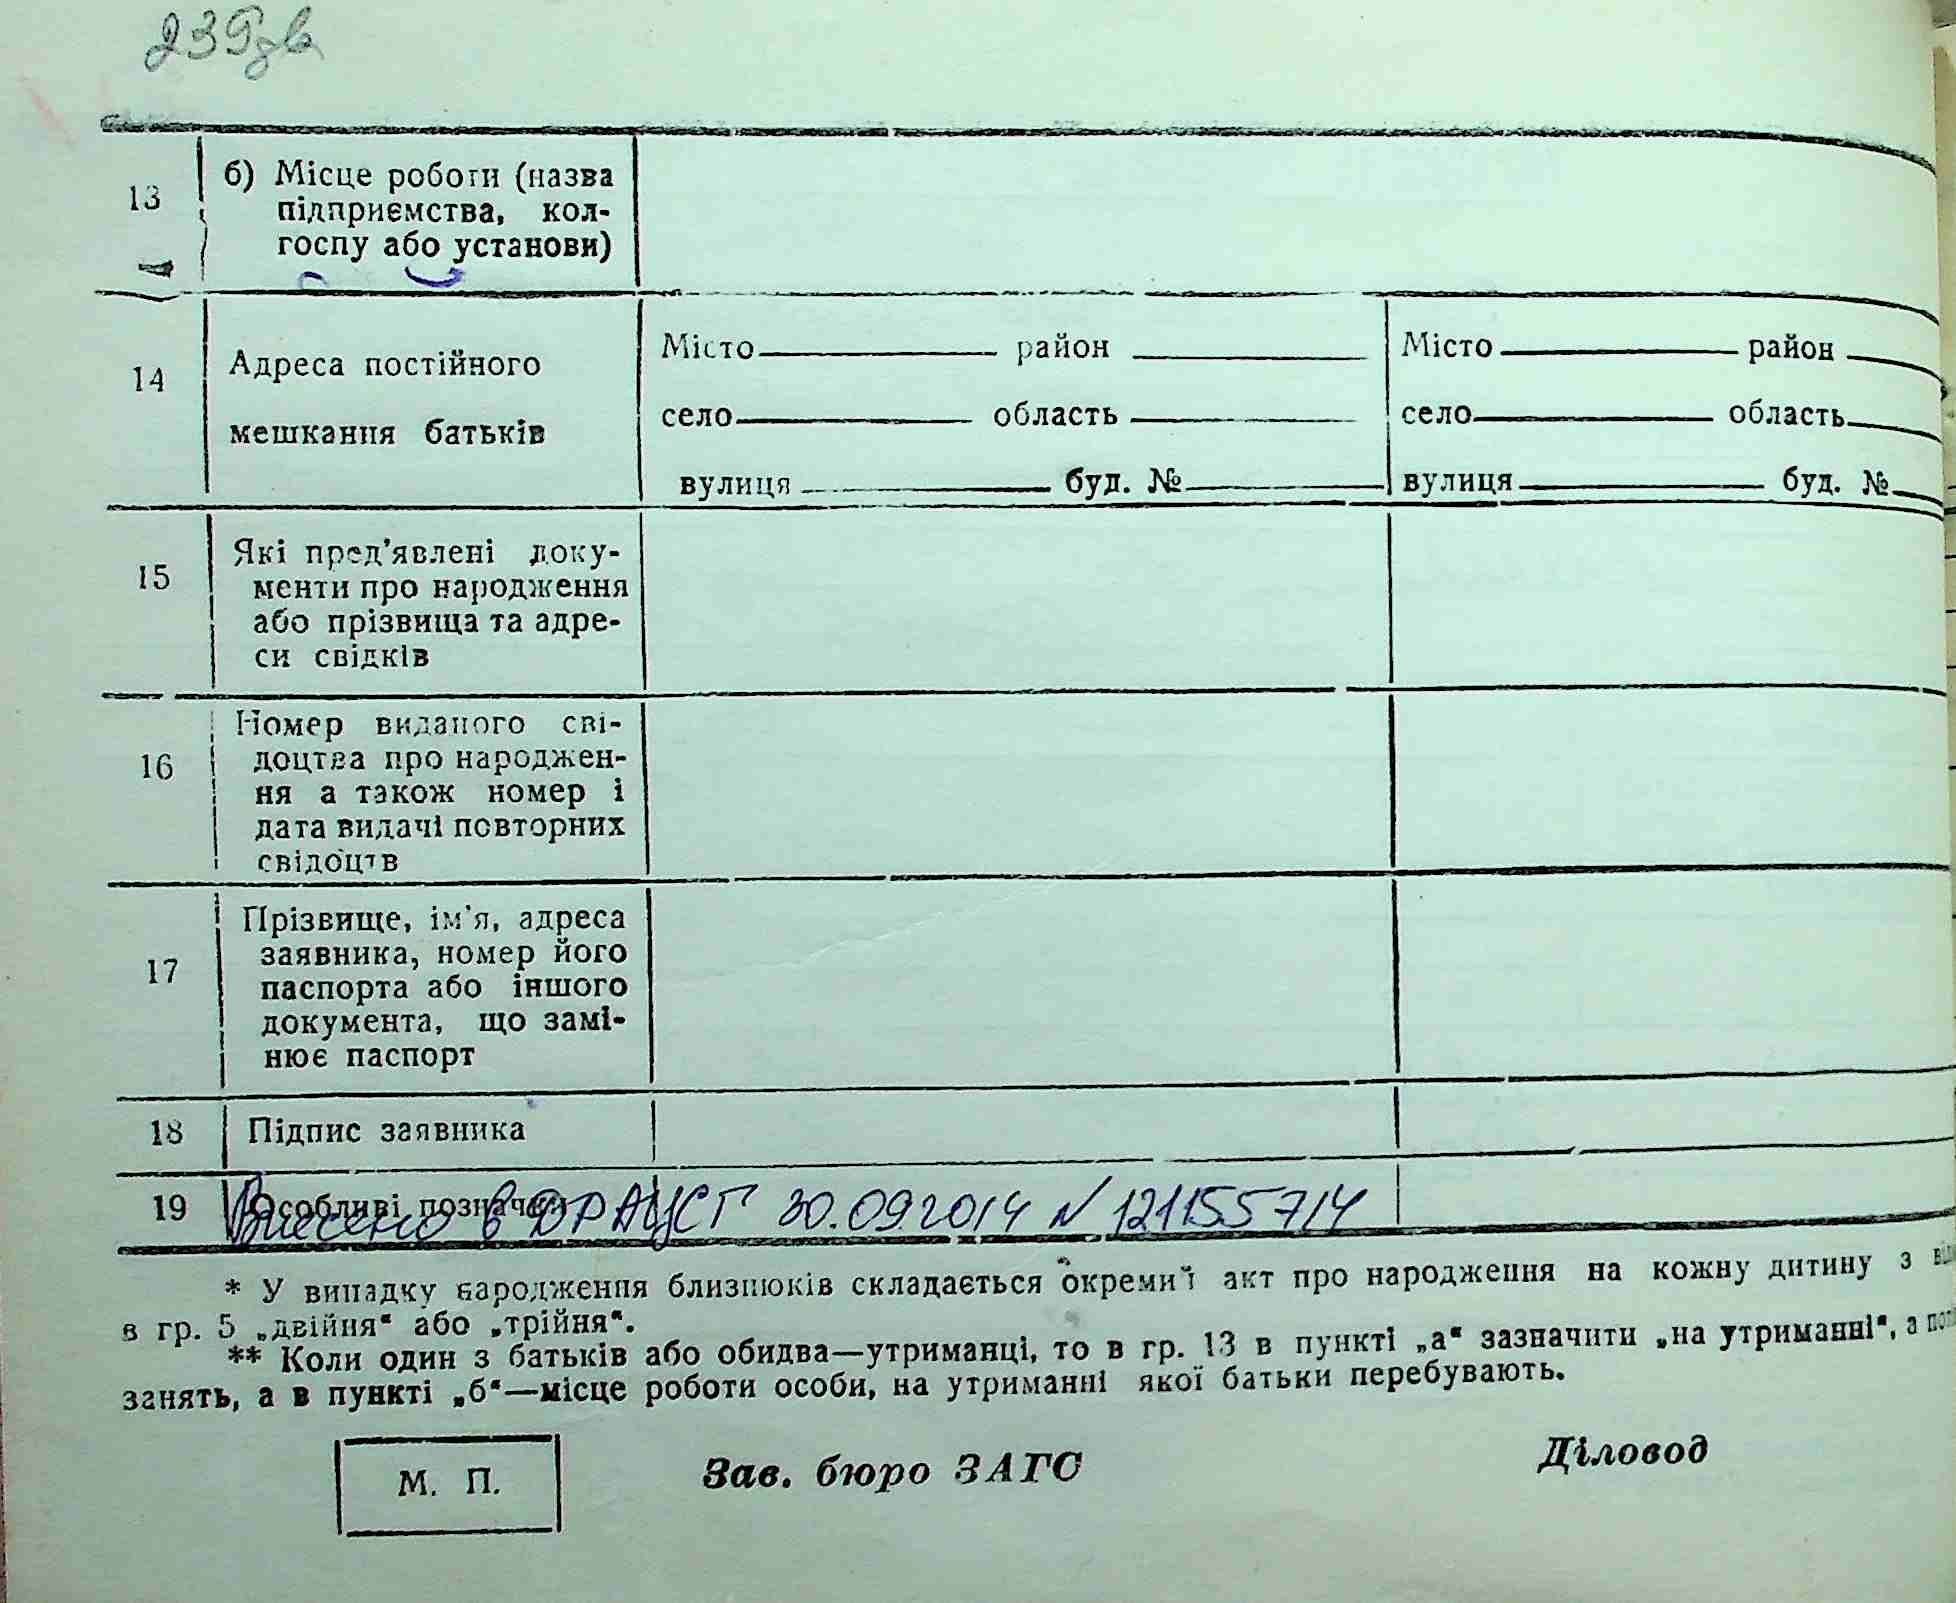 13
б) Місце роботи (назва
підприємства, кол-
госпу або установи)
14
Адреса постійного
мешкання батьків
Місто район
село область
вулиця буд. №
Місто район
село область
вулиця буд. №
15
Які пред'явлені доку-
менти про народження
або прізвища та адре-
си свідків
16
Номер виданого сві-
доцтва про народжен-
ня а також номер і
дата видачі повторних
свідоцтв
17
Прізвище, ім'я, адреса
заявника, номер його
паспорта або іншого
документа, що замі-
нює паспорт
18
Підпис заявника
19
Особливі позначки
Внесено в ДРАЦСГ 30.09.2014 № 121155714
* У випадку народження близнюків складається окремий акт про народження на кожну дитину з
в гр. 5 „двійня“ або „трійня“.
** Коли один з батьків або обидва—утриманці, то в гр. 13 в пункті „а“ зазначити „на утриманні“, а
занять, а в пункті „б“—місце роботи особи, на утриманні якої батьки перебувають.
М. П.
Зав. бюро ЗАГС
Діловод